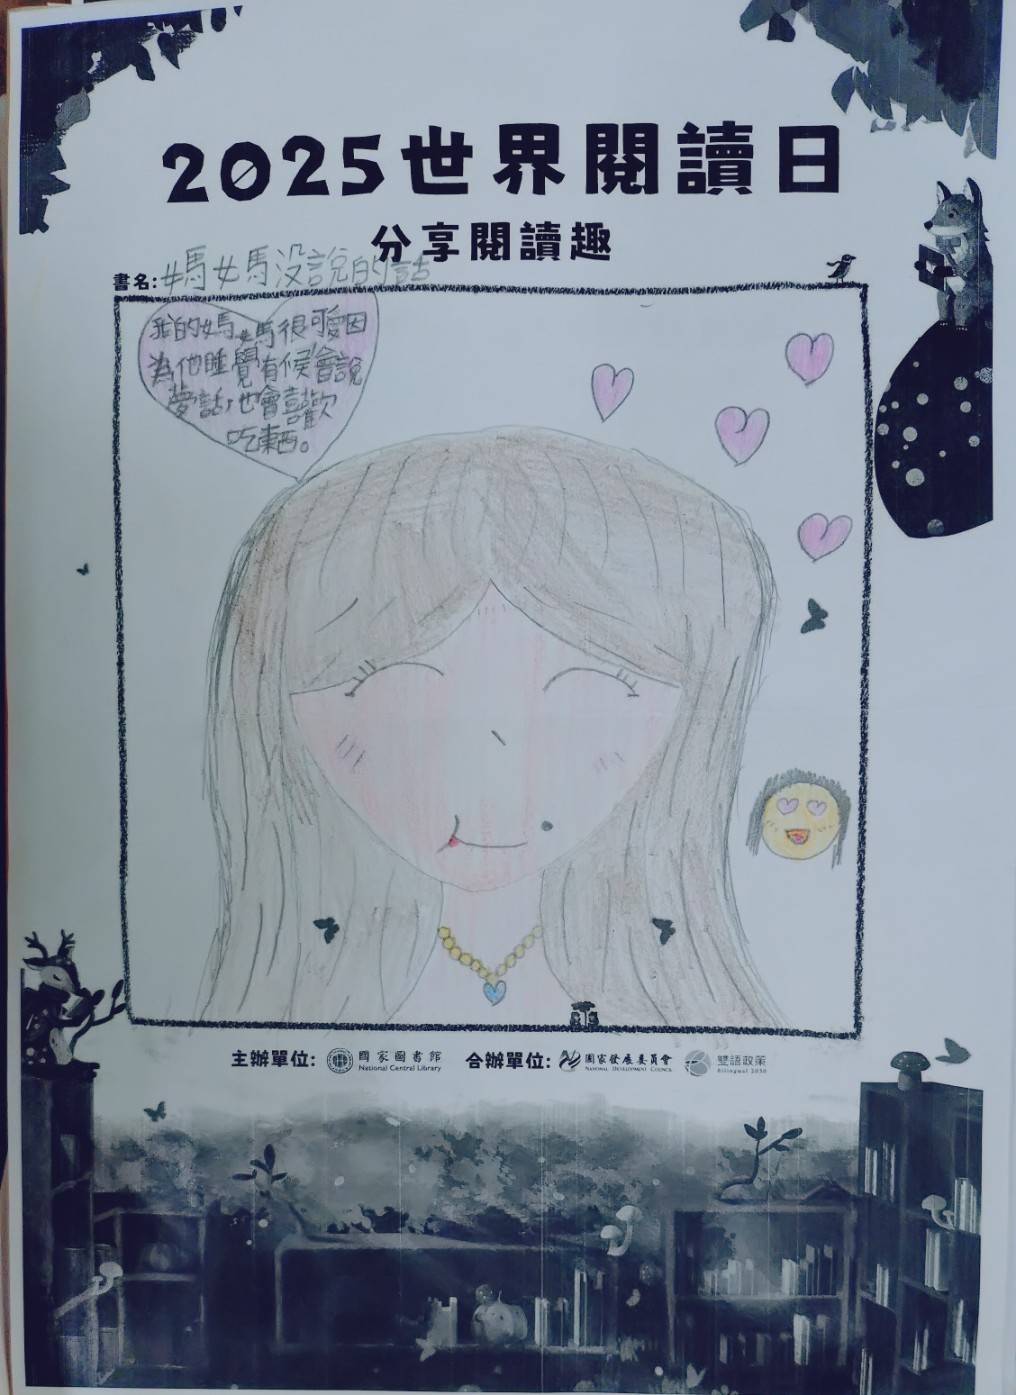 2025世界閱讀日
分享閱讀趣
書名:媽媽没說的話
我的媽媽很可愛因
為他睡覺有候會說
夢話,也會喜歡
吃東西。
主辦單位: 國家圖書館 National Central Library 合辦單位: 國家發展委員會 NATIONAL DEVELOPMENT COUNCIL 雙語政策 Bilingual 2030